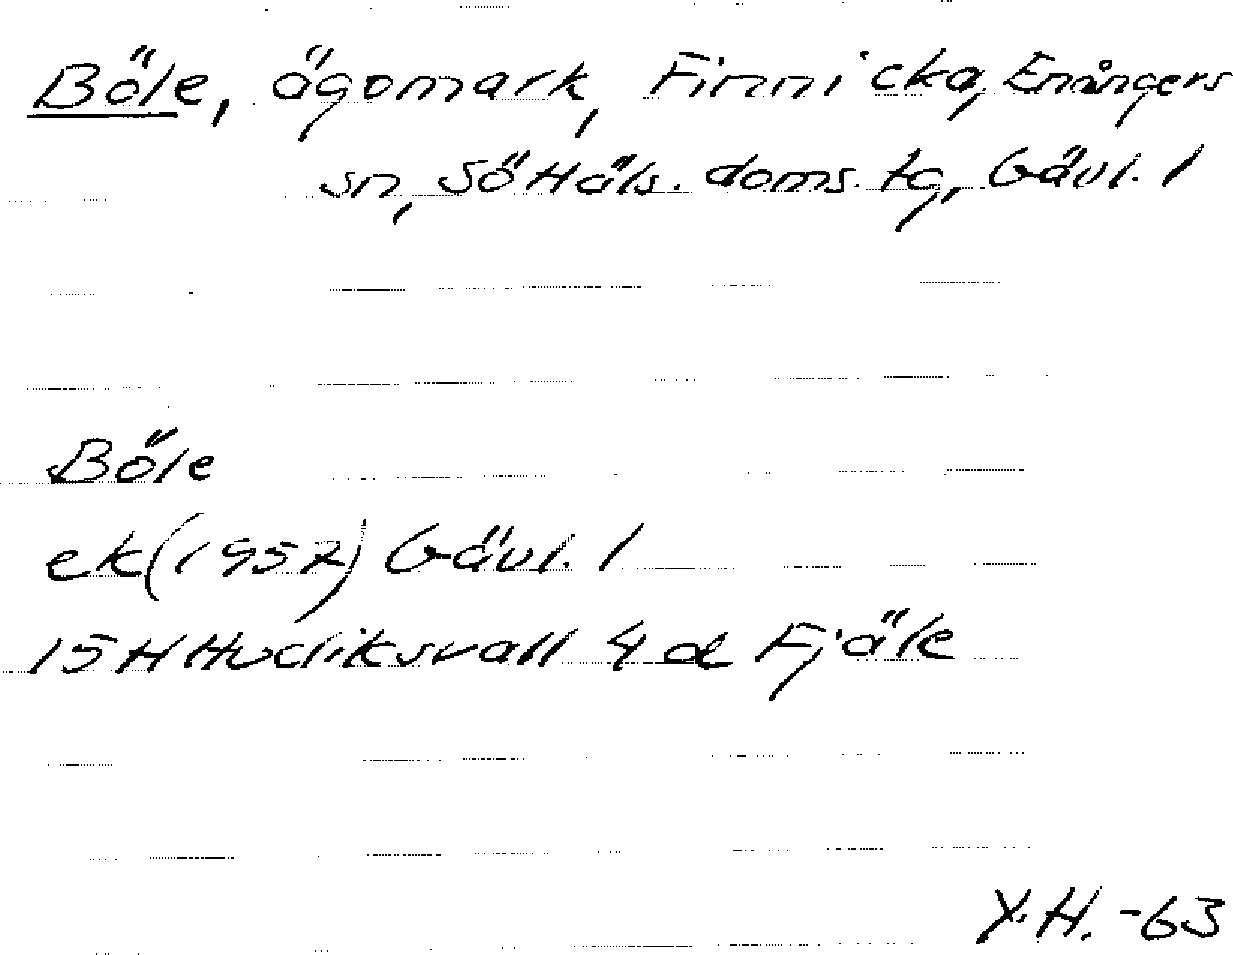 Böle, ägomark, Finnicka, Enångers
sn, SöHäls. doms. tg, Gävl. l
Böle
ek(1957) Gävl. l
15H Hudiksvall 4 d Fjäle
Y.H. -63